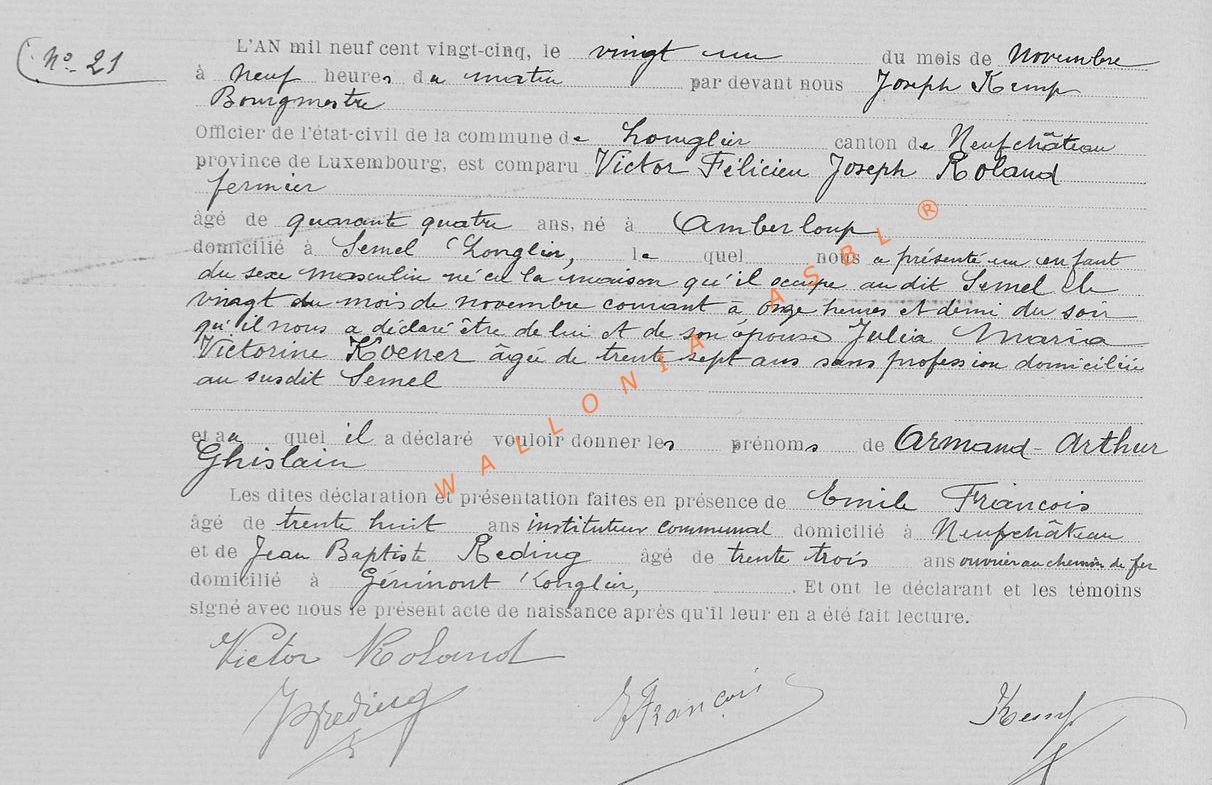 Nº 21
L'AN mil neuf cent vingt-cinq, le vingt un du mois de Novembre
à neuf heures du matin par devant nous Joseph Kemp
Bourgmestre
Officier de l'état-civil de la commune de Longlier canton de Neufchâteau
province de Luxembourg, est comparu Victor Félicien Joseph Roland
fermier
âgé de quarante quatre ans, né à Amberloup
domicilié à Semel (Longlier, le quel nous a présenté un enfant
du sexe masculin né en la maison qu'il occupe au dit Semel le
vingt du mois de novembre courant à onze heures et demi du soir
qu'il nous a déclaré être de lui et de son épouse Julia Maria
Victorine Koener âgée de trente sept ans sans profession domiciliée
au susdit Semel
et au quel il a déclaré vouloir donner les prénoms de Armand-Arthur
Ghislain
Les dites déclaration et présentation faites en présence de Emile François
âgé de trente huit ans instituteur communal domicilié à Neufchâteau
et de Jean Baptiste Reding âgé de trente trois ans ouvrier au chemin de fer
domicilié à Gerimont (Longlier, Et ont le déclarant et les témoins
signé avec nous le présent acte de naissance après qu'il leur en a été fait lecture.
Victor Roland
JBReding E François Kemp
WALLONIA ASBL ®